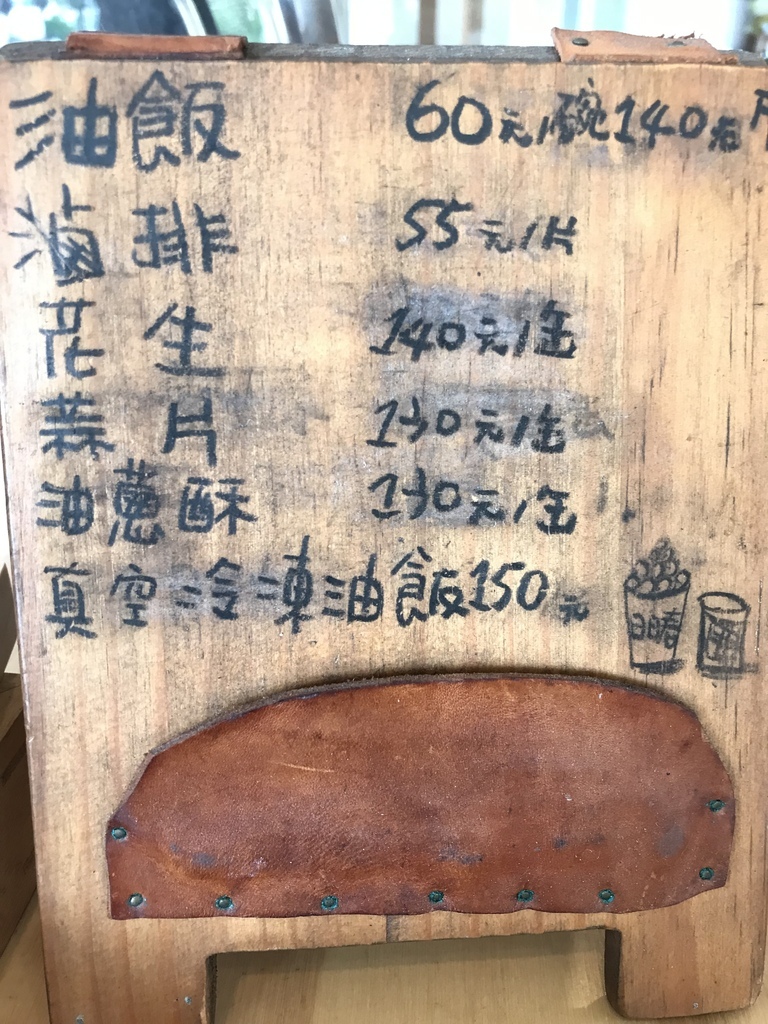 油飯 60元/碗 140元/斤
滷排 55元/片
花生 140元/缶
蒜片 130元/缶
油蔥酥 130元/缶
真空冷凍油飯150元